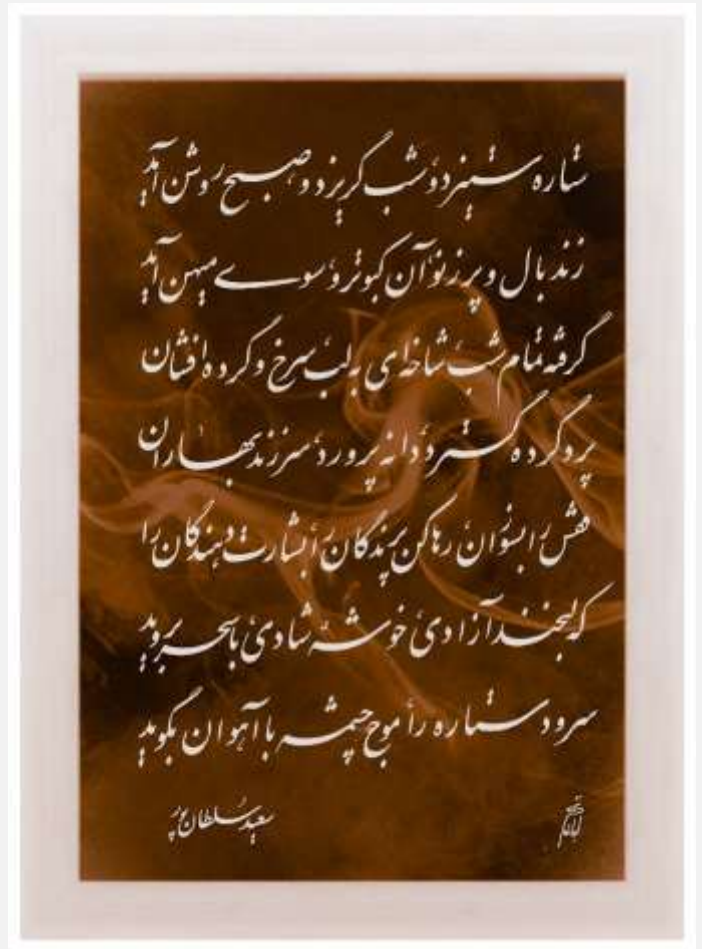 ستاره ستیزد و شب گریزد و صبح روشن آید
زند بال و پر ز نو آن کبوتر و سوی میهن آید
گرفته تمام شب شاخه‌ای به لب سرخ و کرده افشان
پرد گرده گسترد دانه پرورد سر زند بهاران
قفس را بسوزان رها کن پرندگان را بشارت دهندگان را
که لبخند آزادی خوشه شادی با سحر بروید
سرود ستاره را موج چشمه با آهوان بگوید
سعید سلطان پور